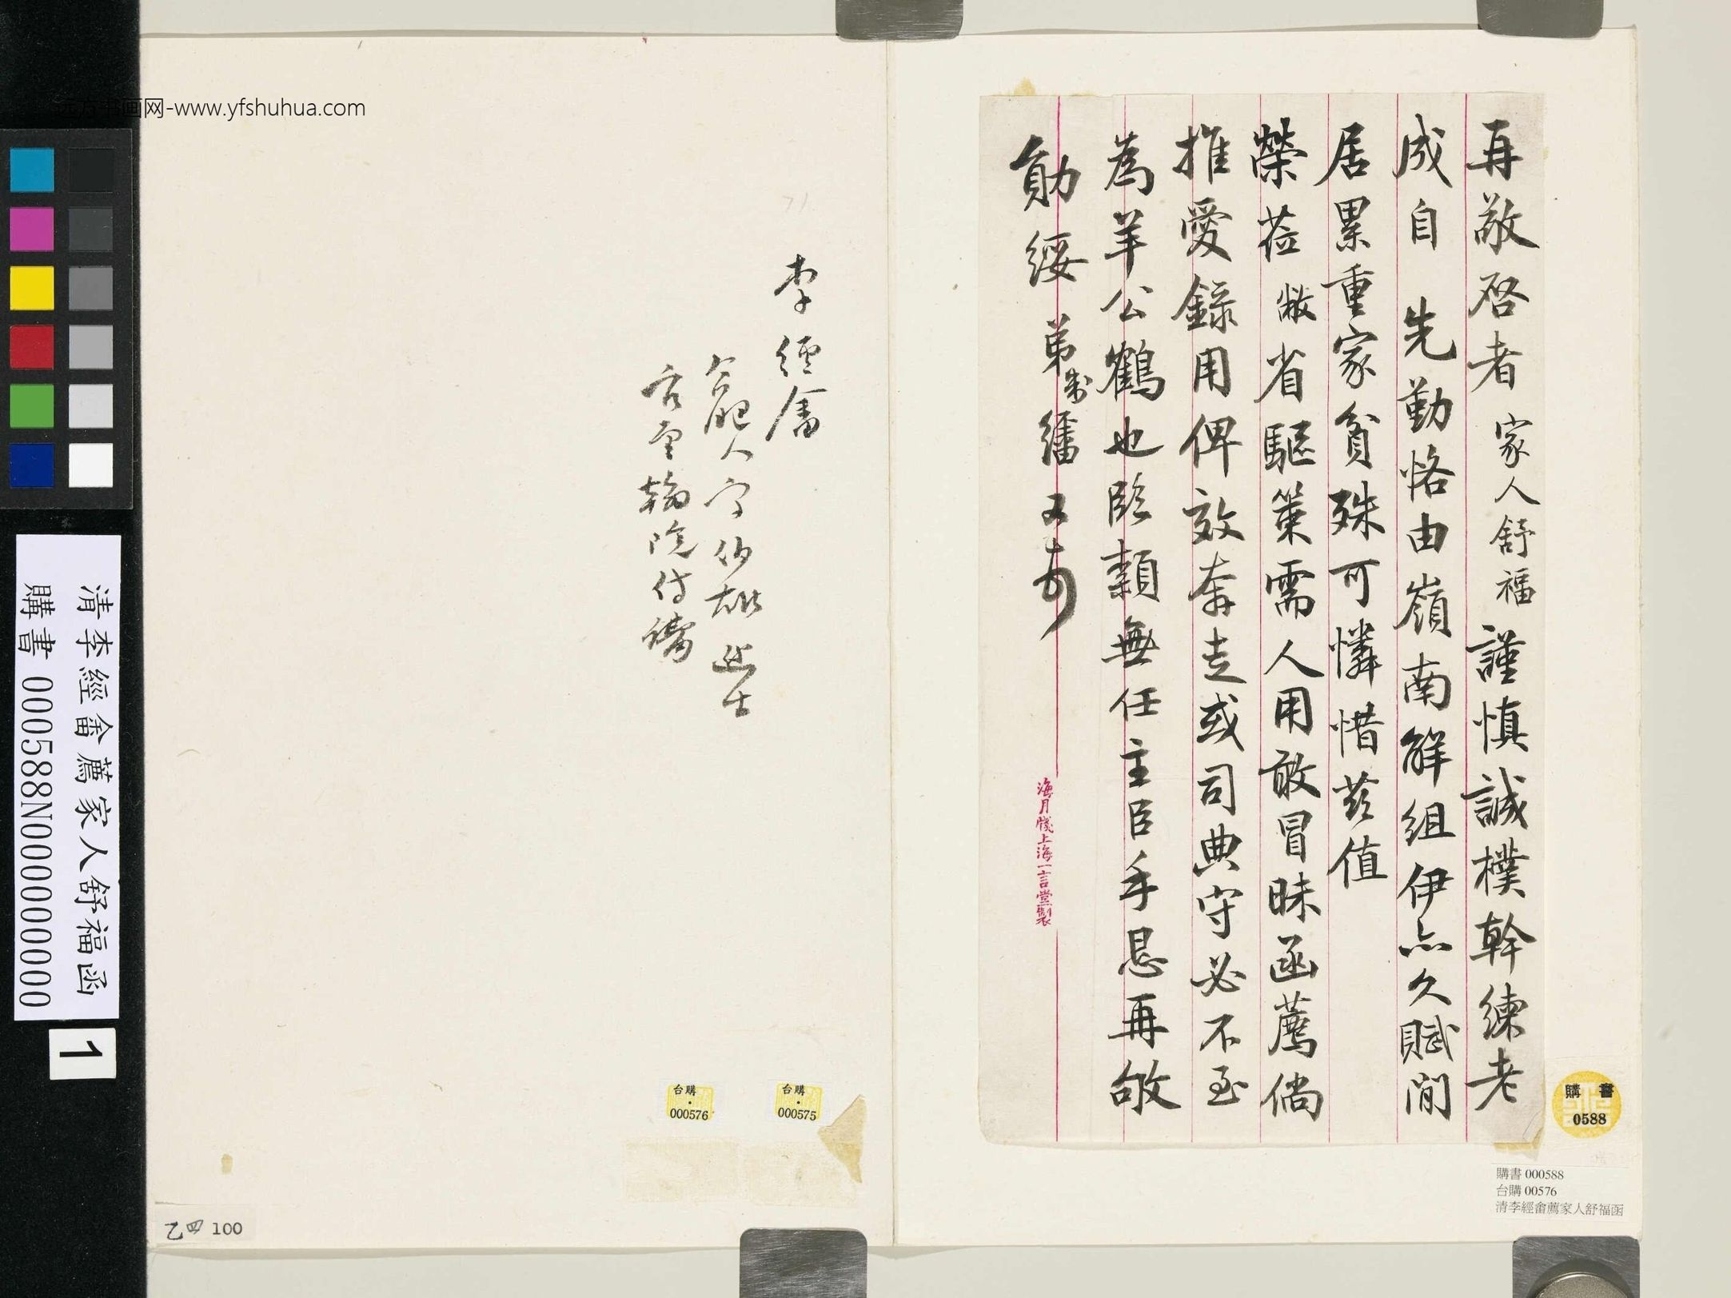 再敬啓者家人舒福謹慎誠樸幹練老
成自 先勤恪由嶺南解組伊亦久賦閒
居累重家貧殊可憐惜茲值
榮蒞敝省驅策需人用敢冒昧函薦倘
推愛錄用俾效奔走或司典守必不至
為羊公鶴也臨穎無任主臣手恳再敂
勛綏 弟制經畬又頓
海月牋上海一言堂製
李經畬
合肥人字伯雄進士
官至翰院侍講
台購
000575
台購
000576
購書
0588
購書 000588
台購 00576
清李經畬薦家人舒福函
清李經畬薦家人舒福函
購書 000588N000000000
1
乙四 100
远方书画网-www.yfshuhua.com